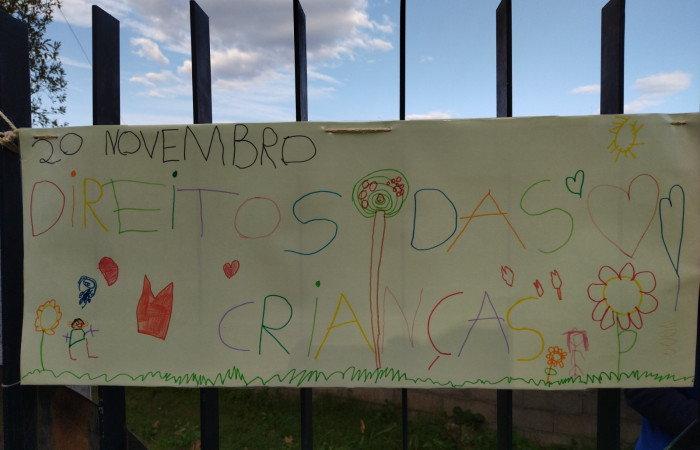 20 NOVEMBRO
DiREiTOS DAS
CRiANÇAS